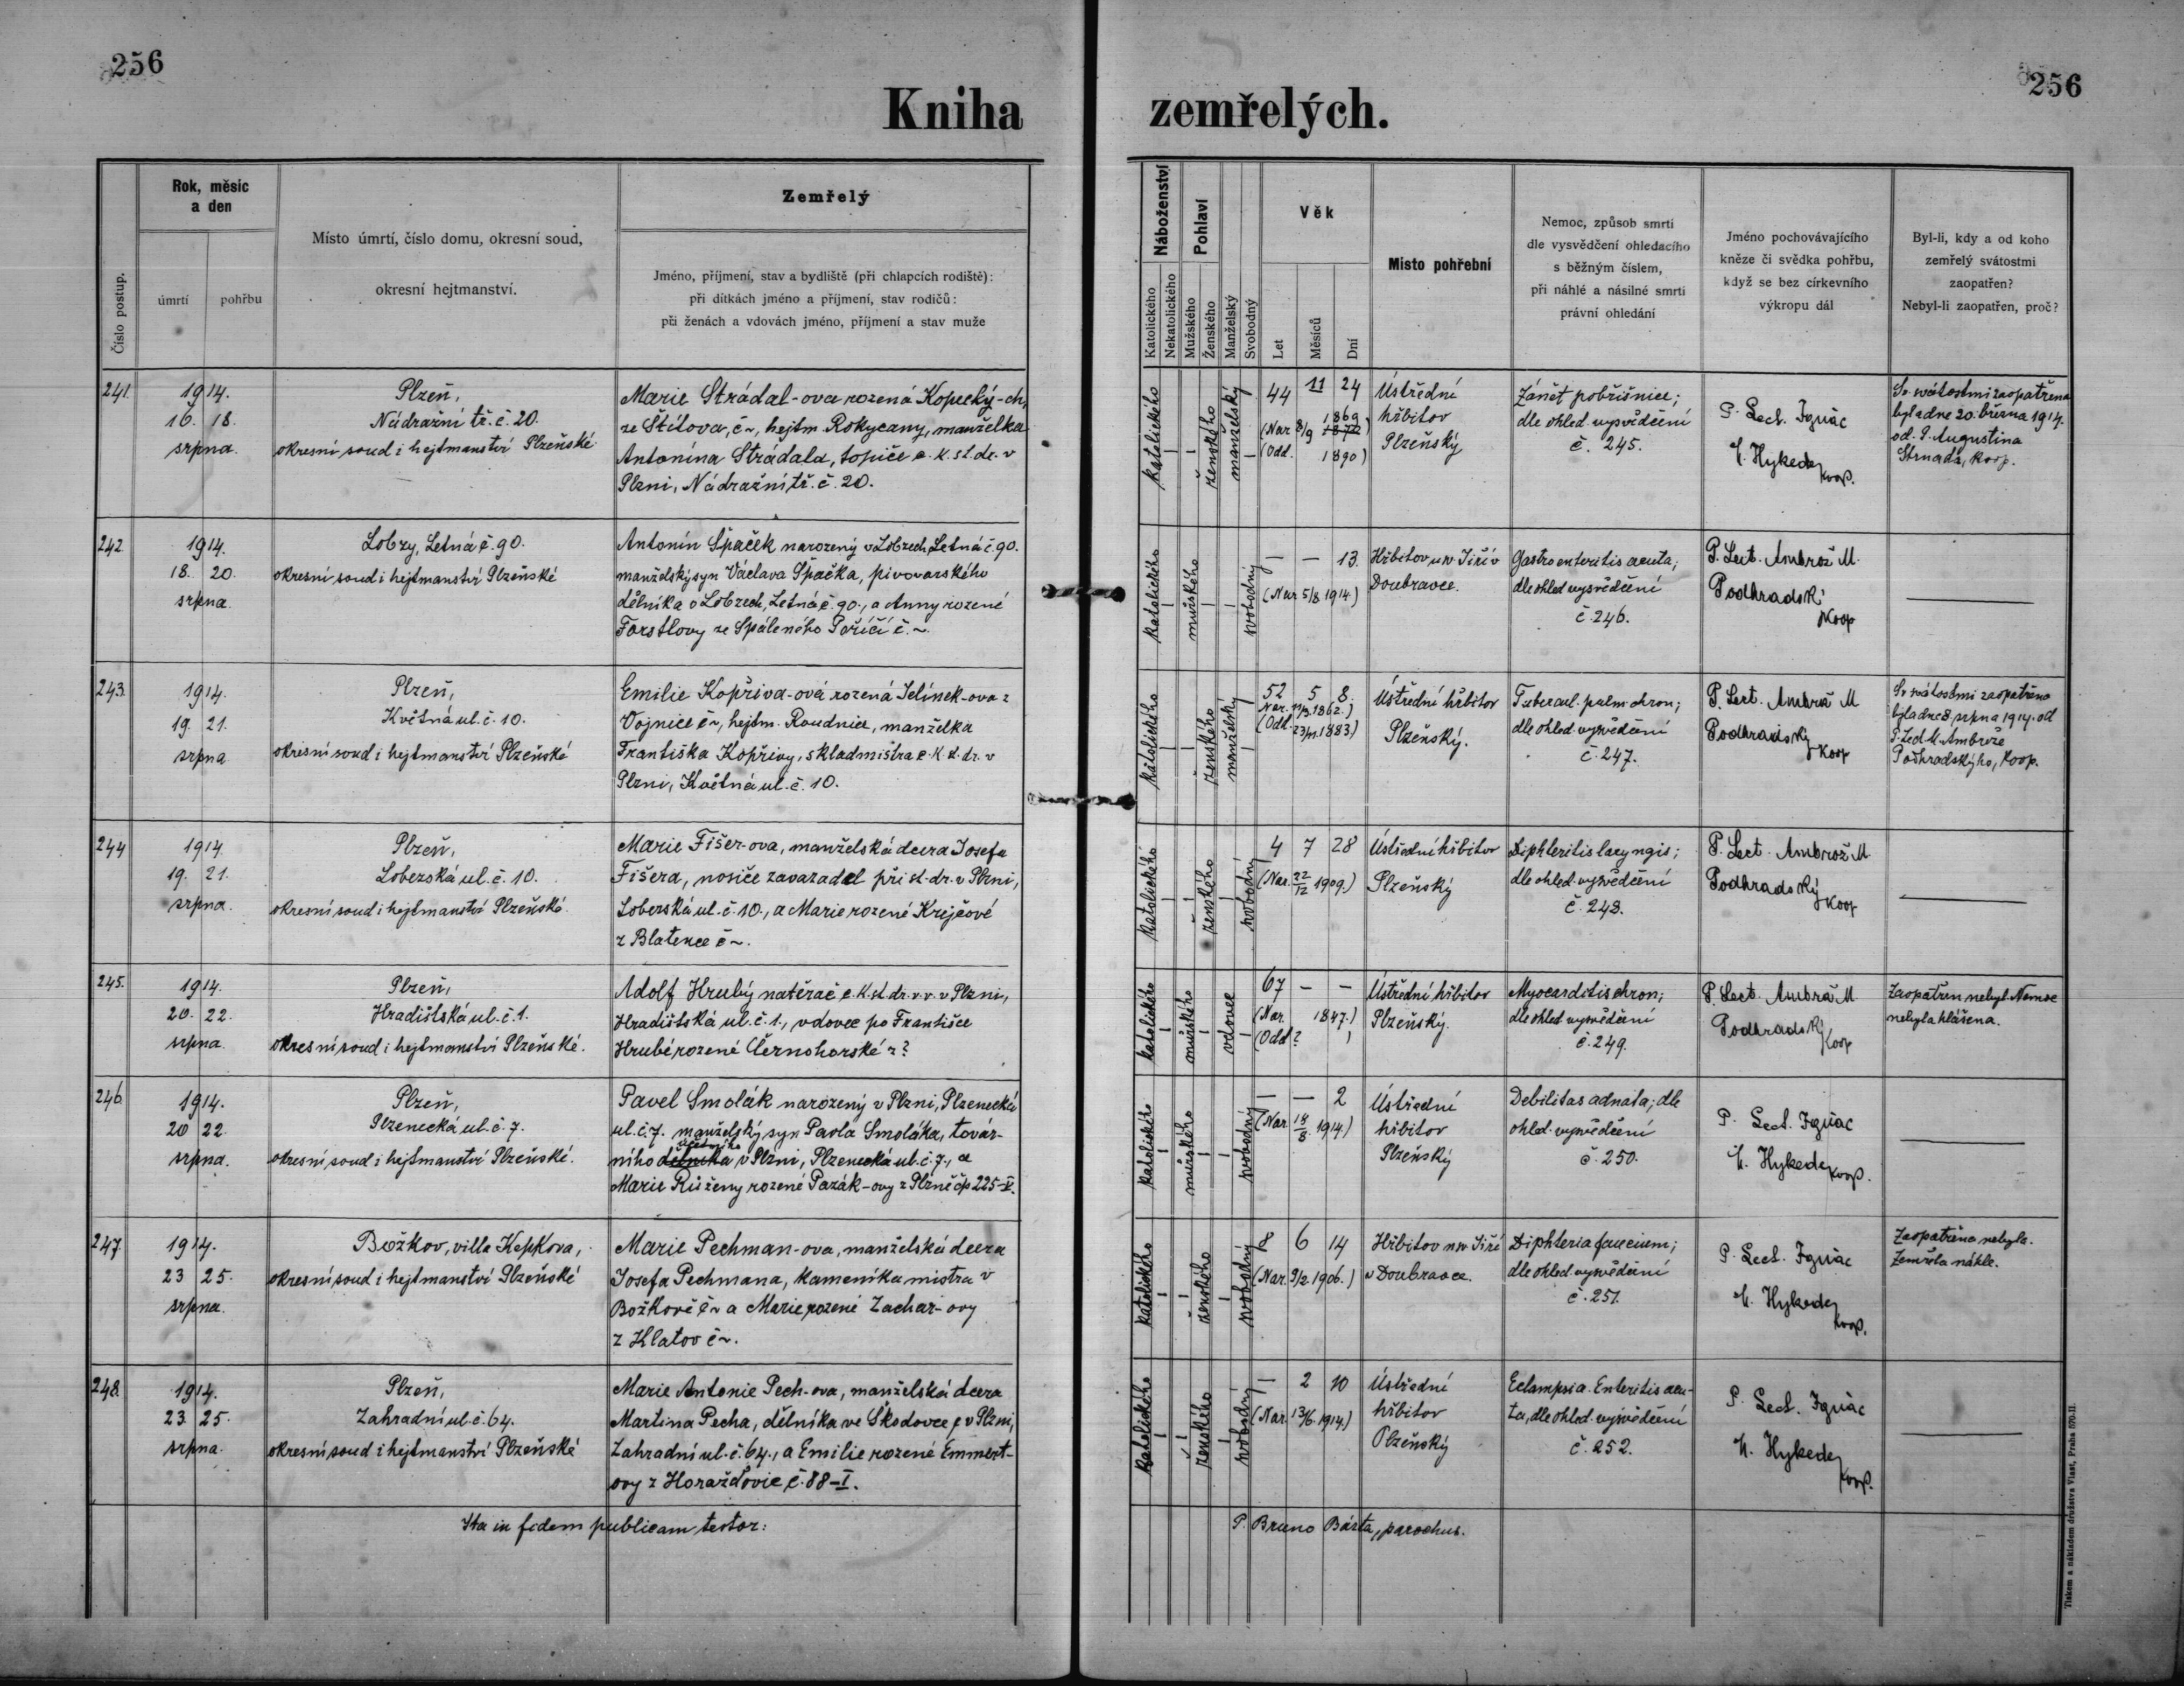 256
256
Kniha zemřelých.
Číslo postup.
Rok, měsíc
a den
úmrtí
pohřbu
Místo úmrtí, číslo domu, okresní soud,
okresní hejtmanství.
Zemřelý
Jméno, příjmení, stav a bydliště (při chlapcích rodiště):
při dítkách jméno a příjmení, stav rodičů:
při ženách a vdovách jméno, příjmení a stav muže
Náboženství
Katolického
Nekatolického
Pohlaví
Mužského
Ženského
Manželský
Svobodný
Věk
Let
Měsíců
Dní
Místo pohřební
Nemoc, způsob smrti
dle vysvědčení ohledacího
s běžným číslem,
při náhlé a násilné smrti
právní ohledání
Jméno pochovávajícího
kněze či svědka pohřbu,
když se bez církevního
výkropu dál
Byl-li, kdy a od koho
zemřelý svátostmi
zaopatřen?
Nebyl-li zaopatřen, proč?
241.
1914.
16. 18.
srpna.
Plzeň,
Nádražní tř. č. 20.
okresní soud i hejtmanství Plzeňské
Marie Strádal-ova rozená Kopecký-ch,
ze Štítova, č~, hejtm Rokycany, manželka
Antonína Strádala, topiče c. k. st. dr. v
Plzni, Nádražní tř. č. 20.
katolického
ženského
manželský
44 11 24
(Nar 8/9 1869 1872)
(Odd. 1890)
Ústřední
hřbitov
Plzeňský
Zánět pobřišnice;
dle ohled vysvědčení
č. 245.
P. Lect. Ignác
Hykeda
koop.
Sv. svátostmi zaopatřena
byla dne 20. března 1914.
od. P. Augustina
Strnada, koop.
242.
1914.
18. 20.
srpna.
Lobzy, Letná č. 90.
okresní soud i hejtmanství Plzeňské
Antonín Špaček narozený v Lobzech Letná č. 90.
manželský syn Václava Špačka, pivovarského
dělníka v Lobzech, Letná č. 90., a Anny rozené
Forstlovy ze Spáleného Poříčí č. ~.
katolického
mužského
svobodný
— — 13.
(Nar 5/8 1914)
Hřbitov u sv. Jiří v
Doubravce.
Gastroenteritis acuta;
dle ohled vysvědčení
č. 246.
P. Lect. Ambrož M.
Podhradský
Koop
—
243.
1914.
19. 21.
srpna
Plzeň,
Květná ul. č. 10.
okresní soud i hejtmanství Plzeňské
Emilie Kopřiva-ová rozená Jelínek-ova z
Vojnice č~, hejtm. Roudnice, manželka
Františka Kopřivy, skladmistra c. k. st. dr. v
Plzni, Květná ul. č. 10.
katolického
ženského
manželský
52 5 8.
Nar. 11/3. 1862.)
(Odd. 23/11 1883)
Ústřední hřbitov
Plzeňský.
Tubercul. pulm chron;
dle ohled. vysvědčení
č. 247.
P. Lect. Ambrož M
Podhradský
Koop
Sv svátostmi zaopatřena
byla dne 8. srpna 1914. od
P. Lect M. Ambrože
Podhradského, koop.
244
1914.
19. 21.
srpna.
Plzeň,
Loberská ul. č. 10.
okresní soud i hejtmanství Plzeňské.
Marie Fišer-ova, manželská dcera Josefa
Fišera, nosiče zavazadel při st. dr. v Plzni,
Loberská ul. č. 10., a Marie rozené Krejčové
z Blatence č~.
katolického
ženského
svobodný
4 7 28
(Nar. 22/12 1909.)
Ústřední hřbitov
Plzeňský
Diphteritis laryngis;
dle ohled. vysvědčení
č. 248.
P. Lect. Ambrož M.
Podhradský
Koop
—
245.
1914.
20. 22.
srpna
Plzeň,
Hradištská ul. č. 1.
okresní soud i hejtmanství Plzeňské.
Adolf Hrubý natěrač c. k. st. dr. v. v. v Plzni,
Hradištská ul. č. 1., vdovec po Františce
Hrubé rozené Černohorské z ?
katolického
mužského
vdovec
67 — —
(Nar 1847.)
(Odd ? )
Ústřední hřbitov
Plzeňský.
Myocarditis chron;
dle ohled vysvědčení
č. 249.
P. Lect. Ambrož M.
Podhradský
Koop
Zaopatřen nebyl. Nemoc
nebyla hlášena.
246.
1914.
20 22.
srpna.
Plzeň,
Plzenecká ul. č. 7.
okresní soud i hejtmanství Plzeňské.
Pavel Smolák narozený v Plzni, Plzenecká
ul. č. 7. manželský syn Pavla Smoláka, továr-
ního dělníka v Plzni, Plzenecká ul. č. 7., a
Marie Růženy rozené Pazák-ovy z Plzně čp 225-V.
katolického
mužského
svobodný
— — 2
(Nar. 18/8 1914)
Ústřední
hřbitov
Plzeňský
Debilitas adnata; dle
ohled. vysvědčení
č. 250.
P. Lect. Ignác
Hykeda
koop.
—
247.
1914.
23 25.
srpna.
Božkov, villa Kepkova,
okresní soud i hejtmanství Plzeňské
Marie Pechman-ova, manželská dcera
Josefa Pechmana, kameníka mistra v
Božkově č~ a Marie rozené Zachar-ovy
z Klatov č~.
katolického
ženského
svobodný
8 6 14
(Nar. 9/2 1906.)
Hřbitov u sv Jiří
v Doubravce.
Diphteria faucium;
dle ohled vysvědčení
č. 251.
P. Lect. Ignác
Hykeda
koop.
Zaopatřena nebyla.
Zemřela náhle.
248.
1914.
23. 25.
srpna.
Plzeň,
Zahradní ul. č. 64.
okresní soud i hejtmanství Plzeňské
Marie Antonie Pech-ova, manželská dcera
Martina Pecha, dělníka ve Škodovce v Plzni,
Zahradní ul. č. 64., a Emilie rozené Emmert-
ovy z Horažďovic č. 88-I.
katolického
ženského
svobodný
— 2 10
(Nar. 13/6. 1914)
Ústřední
hřbitov
Plzeňský
Eclampsia. Enteritis acu-
ta, dle ohled. vysvědčení
č. 252.
P. Lect. Ignác
Hykeda
koop.
—
Ita in fidem publicam testor:
P. Bruno Bárta, parochus.
Tiskem a nákladem družstva Vlast, Praha 570-II.